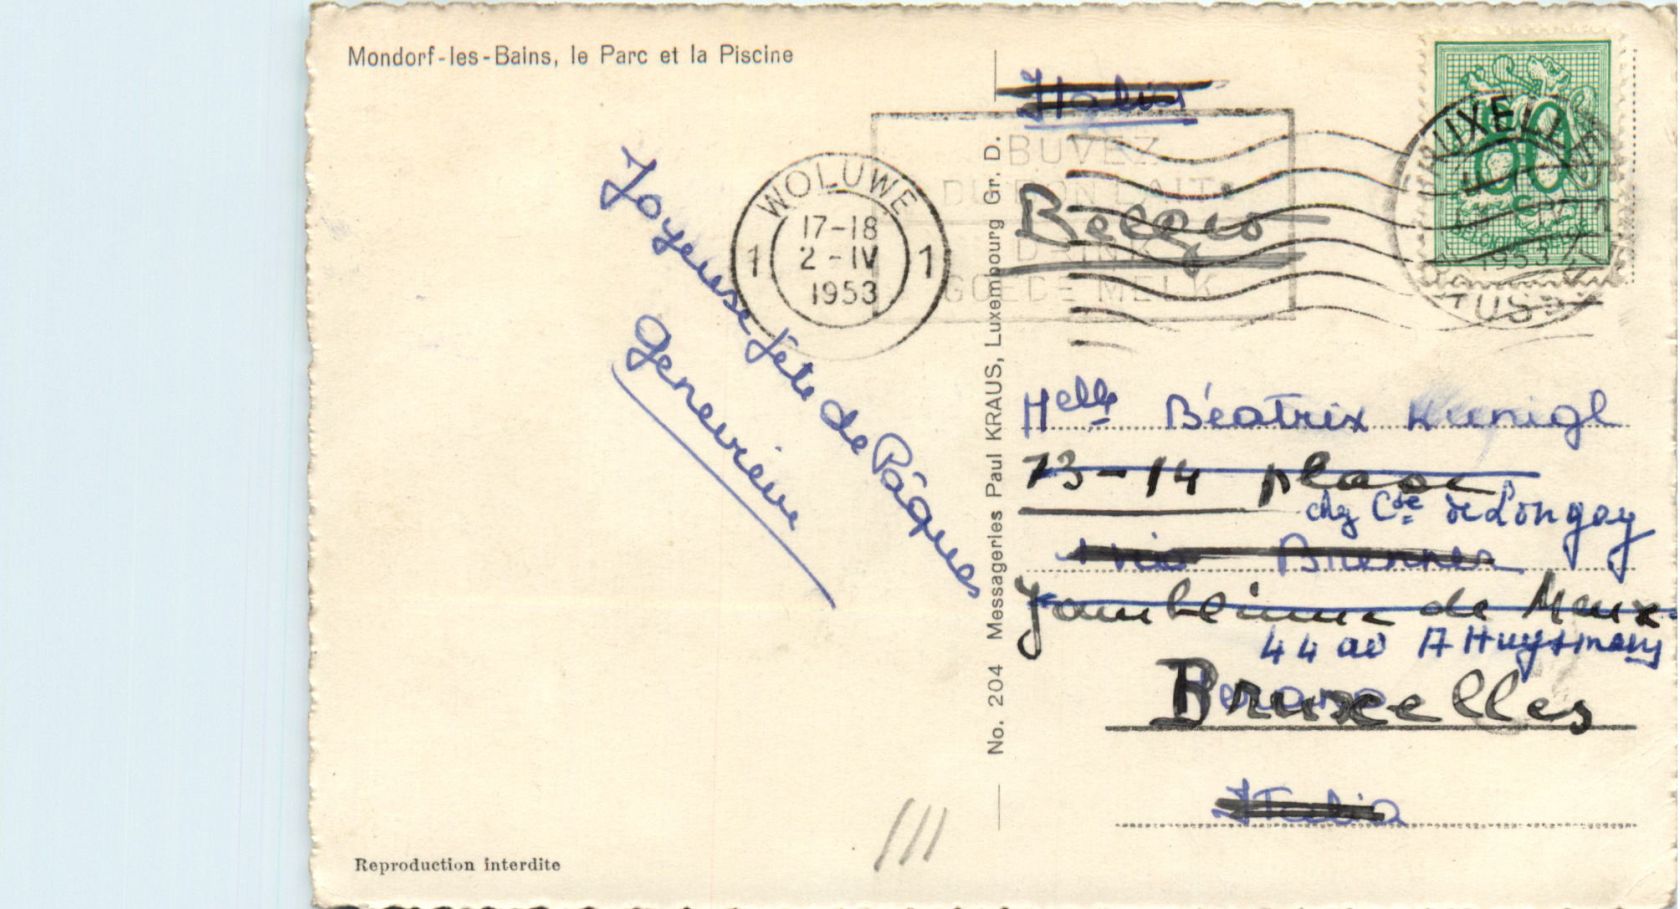 Mondorf-les-Bains, le Parc et la Piscine
Joyeuse fête de Pâques
Geneviève
Reproduction interdite
No. 204 Messageries Paul KRAUS, Luxembourg Gr. D.
WOLUWE
1 17-18 1
2-IV
1953
BUVEZ
DU BON LAIT
DRINKT
GOEDE MELK
Italia
Belgio
BRUXELLES
1953
Melle Béatrix Kunigl
13-14 place
chez Ctsse de Longay
Brenner
Jamblinne de Meux
44 av A Huysmans
Bruxelles
Italia